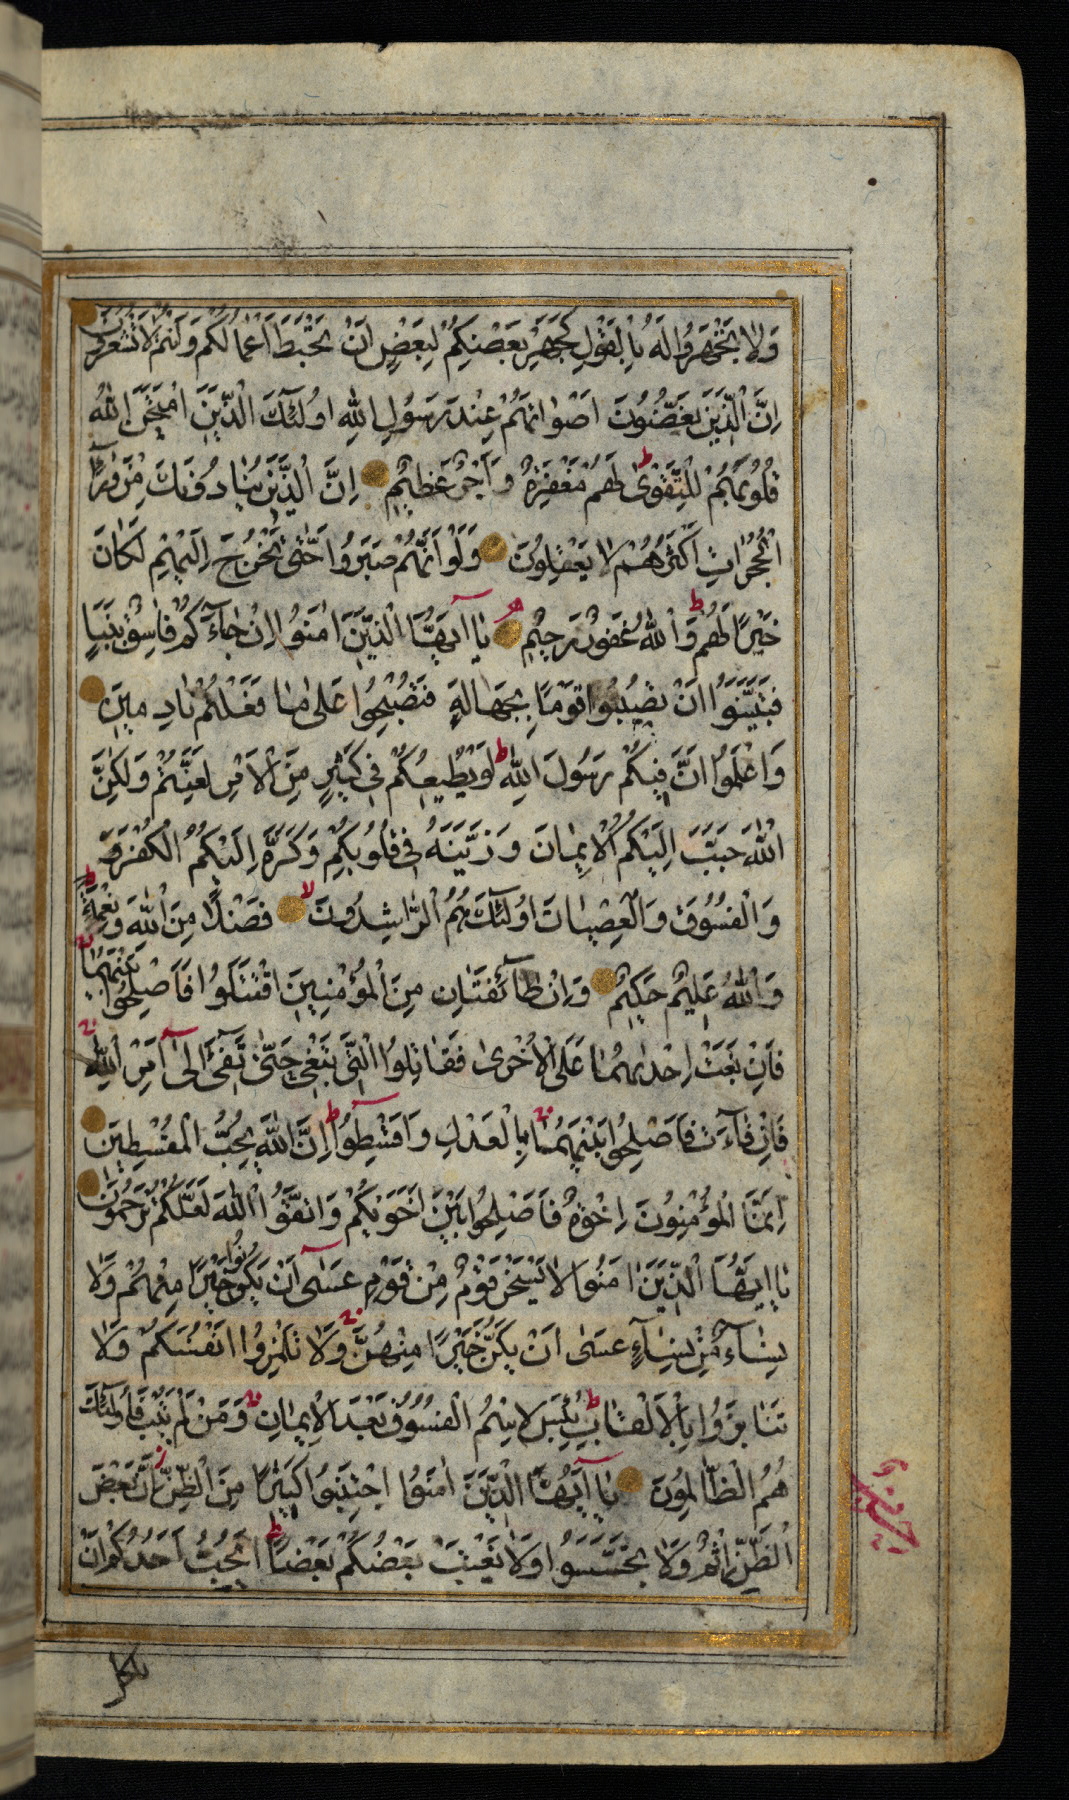 وَلَا تَجْهَرُوا لَهُ بِالْقَوْلِ كَجَهْرِ بَعْضِكُمْ لِبَعْضٍ اَنْ تَحْبَطَ اَعْمَالُكُمْ وَاَنْتُمْ لَا تَشْعُرُونَ
اِنَّ الَّذِينَ يَغُضُّونَ اَصْوَاتَهُمْ عِنْدَ رَسُولِ اللّٰهِ اُولٰٓئِكَ الَّذِينَ امْتَحَنَ اللّٰهُ
قُلُوبَهُمْ لِلتَّقْوٰى ط لَهُمْ مَغْفِرَةٌ وَاَجْرٌ عَظِيمٌ اِنَّ الَّذِينَ يُنَادُونَكَ مِنْ وَرَآءِ
الْحُجُرَاتِ اَكْثَرُهُمْ لَا يَعْقِلُونَ وَلَوْ اَنَّهُمْ صَبَرُوا حَتّٰى تَخْرُجَ اِلَيْهِمْ لَكَانَ
خَيْرًا لَهُمْ ط وَاللّٰهُ غَفُورٌ رَحِيمٌ يَا اَيُّهَا الَّذِينَ اٰمَنُوا اِنْ جَآءَكُمْ فَاسِقٌ بِنَبَاٍ
فَتَبَيَّنُوا اَنْ تُصِيبُوا قَوْمًا بِجَهَالَةٍ فَتُصْبِحُوا عَلٰى مَا فَعَلْتُمْ نَادِمِينَ
وَاعْلَمُوا اَنَّ فِيكُمْ رَسُولَ اللّٰهِ ط لَوْ يُطِيعُكُمْ فِي كَثِيرٍ مِنَ الْاَمْرِ لَعَنِتُّمْ وَلٰكِنَّ
اللّٰهَ حَبَّبَ اِلَيْكُمُ الْاِيمَانَ وَزَيَّنَهُ فِي قُلُوبِكُمْ وَكَرَّهَ اِلَيْكُمُ الْكُفْرَ
وَالْفُسُوقَ وَالْعِصْيَانَ اُولٰٓئِكَ هُمُ الرَّاشِدُونَ لا فَضْلًا مِنَ اللّٰهِ وَنِعْمَةً ط
وَاللّٰهُ عَلِيمٌ حَكِيمٌ وَاِنْ طَآئِفَتَانِ مِنَ الْمُؤْمِنِينَ اقْتَتَلُوا فَاَصْلِحُوا بَيْنَهُمَا
فَاِنْ بَغَتْ اِحْدٰىهُمَا عَلَى الْاُخْرٰى فَقَاتِلُوا الَّتِي تَبْغِي حَتّٰى تَفِٓيءَ اِلٰٓى اَمْرِ اللّٰهِ
فَاِنْ فَآءَتْ فَاَصْلِحُوا بَيْنَهُمَا بِالْعَدْلِ وَاَقْسِطُوا ط اِنَّ اللّٰهَ يُحِبُّ الْمُقْسِطِينَ
اِنَّمَا الْمُؤْمِنُونَ اِخْوَةٌ فَاَصْلِحُوا بَيْنَ اَخَوَيْكُمْ وَاتَّقُوا اللّٰهَ لَعَلَّكُمْ تُرْحَمُونَ
يَا اَيُّهَا الَّذِينَ اٰمَنُوا لَا يَسْخَرْ قَوْمٌ مِنْ قَوْمٍ عَسٰٓى اَنْ يَكُونُوا خَيْرًا مِنْهُمْ وَلَا
نِسَآءٌ مِنْ نِسَآءٍ عَسٰى اَنْ يَكُنَّ خَيْرًا مِنْهُنَّ وَلَا تَلْمِزُوا اَنْفُسَكُمْ وَلَا
تَنَابَزُوا بِالْاَلْقَابِ ط بِئْسَ الِاسْمُ الْفُسُوقُ بَعْدَ الْاِيمَانِ وَمَنْ لَمْ يَتُبْ فَاُولٰٓئِكَ
هُمُ الظَّالِمُونَ يَا اَيُّهَا الَّذِينَ اٰمَنُوا اجْتَنِبُوا كَثِيرًا مِنَ الظَّنِّ اِنَّ بَعْضَ
الظَّنِّ اِثْمٌ وَلَا تَجَسَّسُوا وَلَا يَغْتَبْ بَعْضُكُمْ بَعْضًا ط اَيُحِبُّ اَحَدُكُمْ اَنْ
يَاْكُلَ